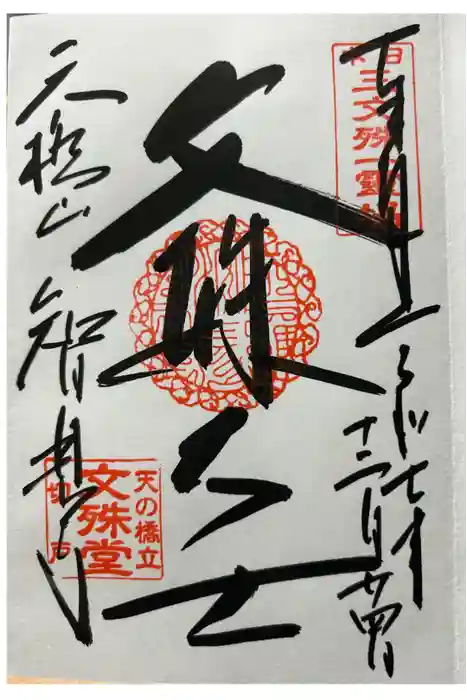 日本三文殊一霊場
令和七年
十二月廿四日
文殊大士
天橋山 智恩寺
天の橋立
文殊堂
切戸